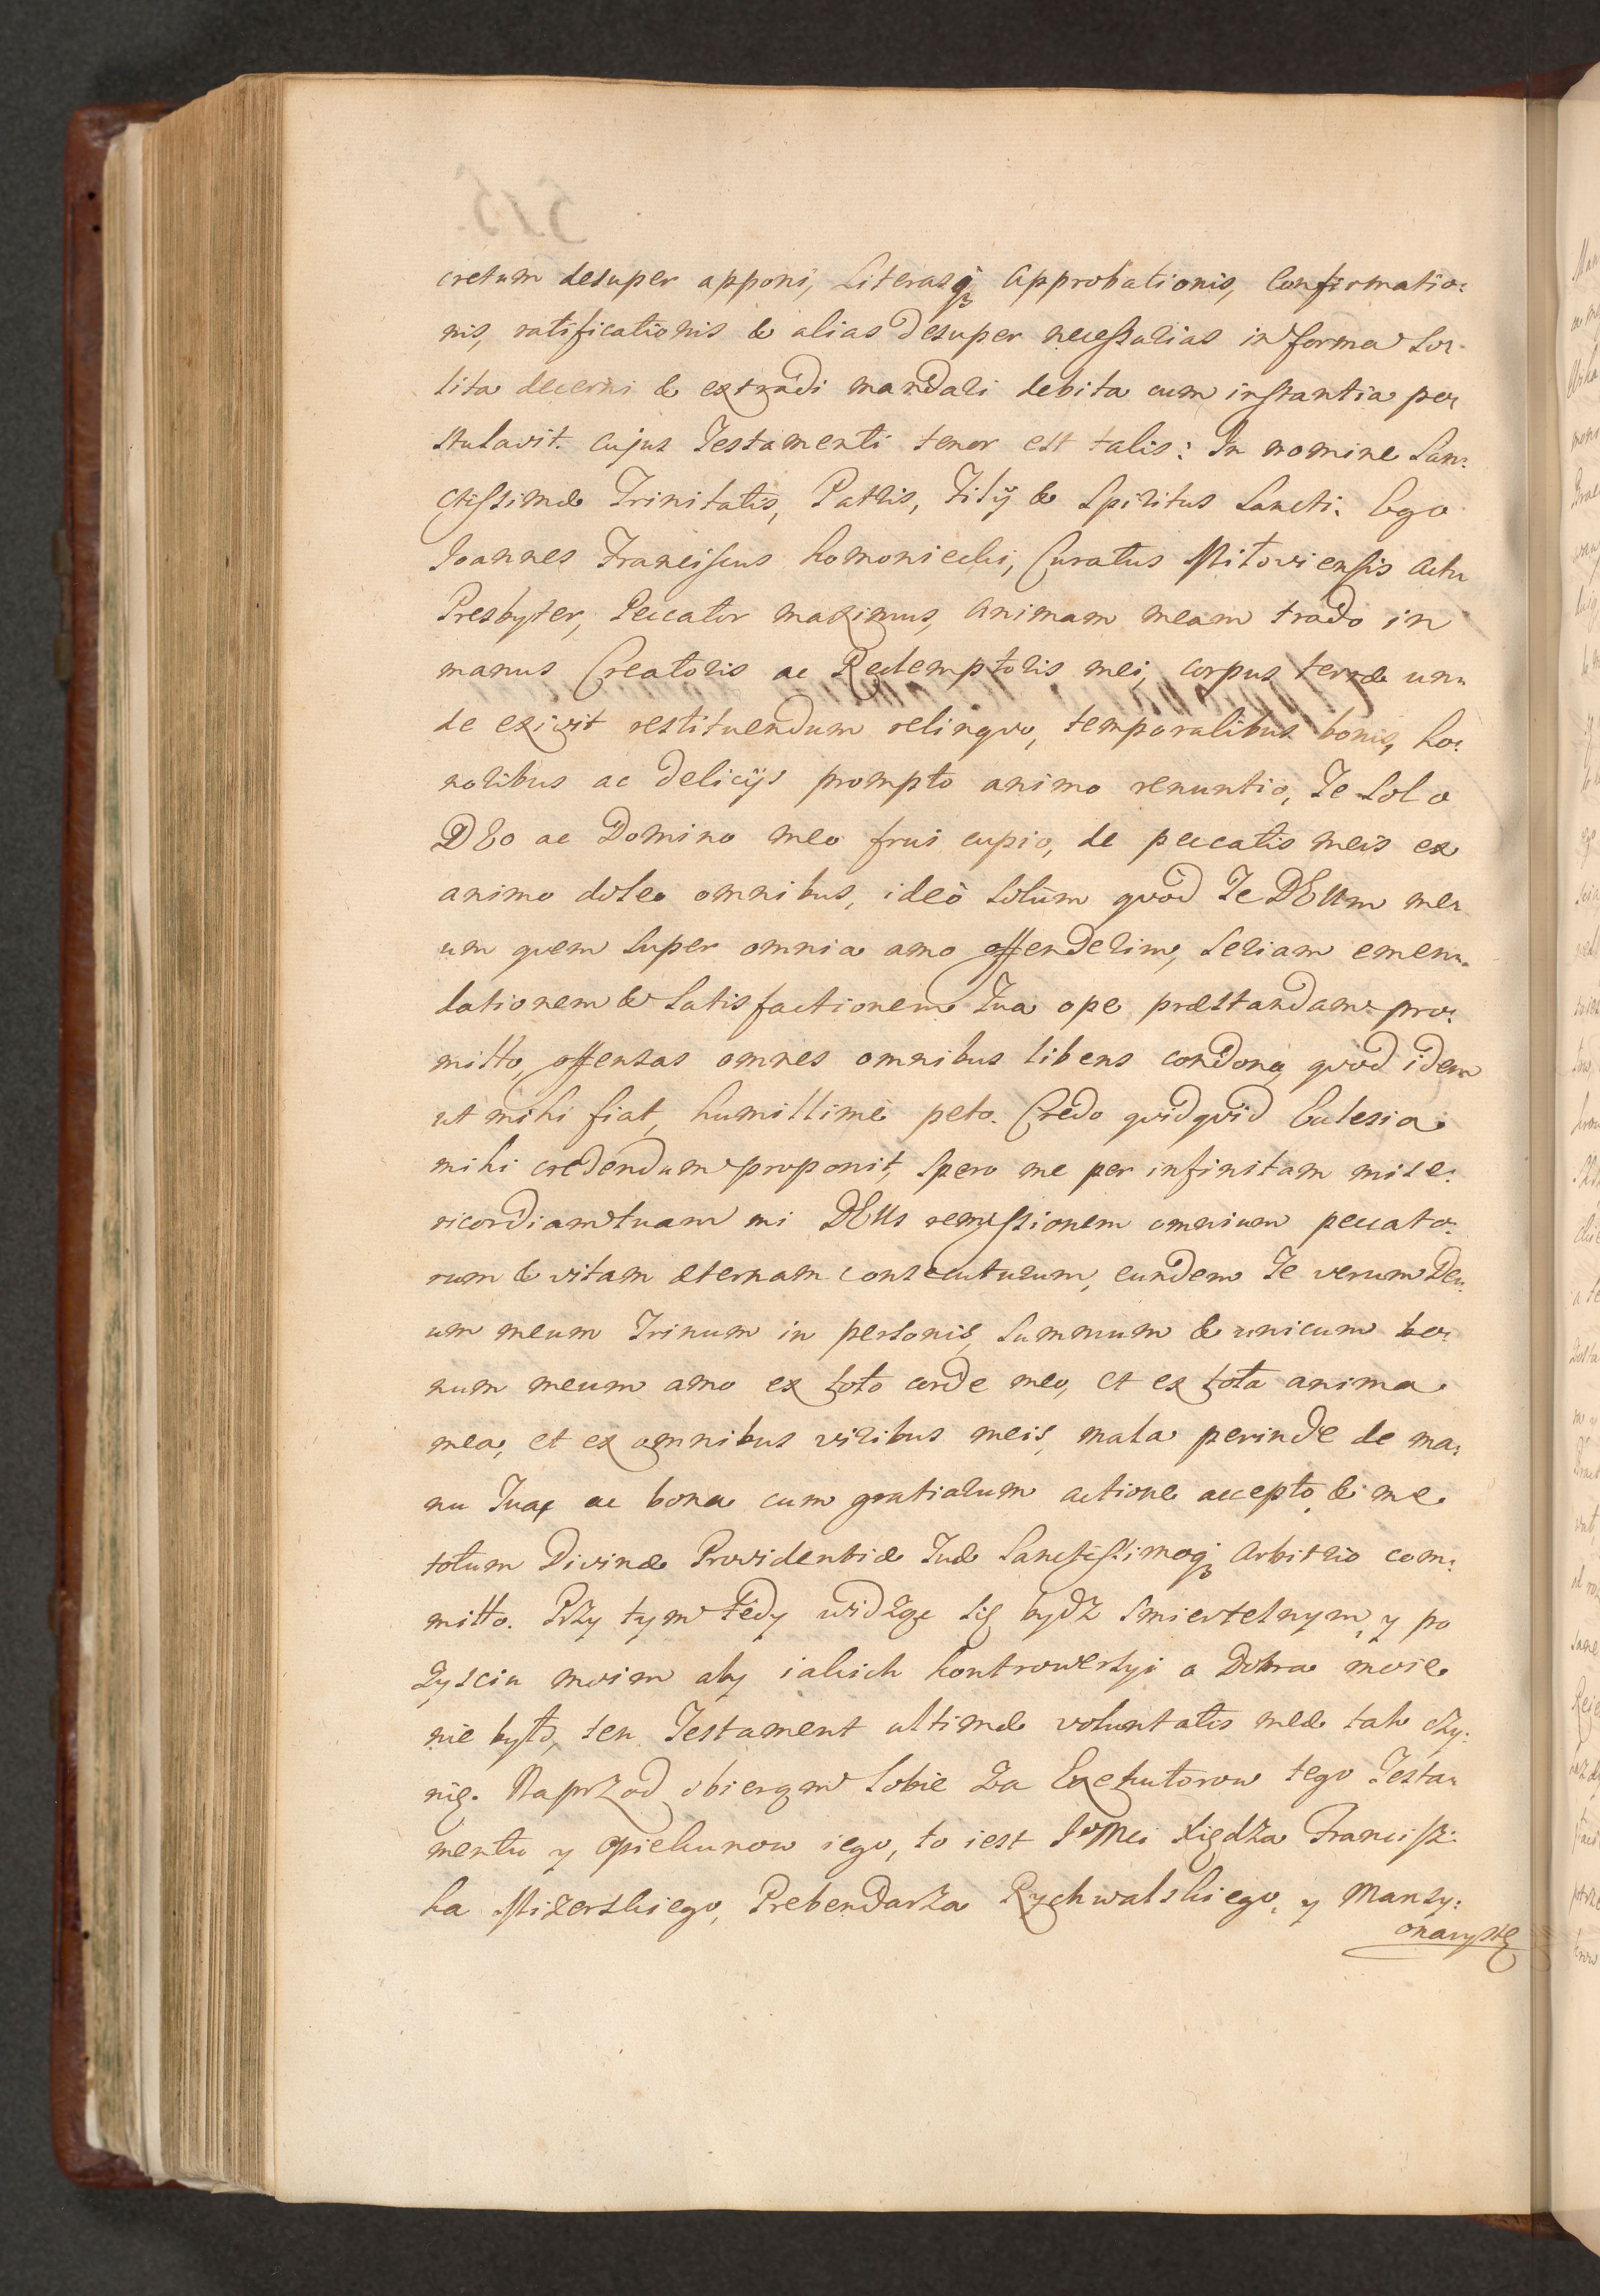 cretum desuper apponi, Literasq́ Approbationis, Confirmatio:
nis, ratificationis & alias desuper necessarias in forma so:
lita decerni & extradi mandari debita cum instantia po:
stulavit. Cujus Testamenti tenor est talis: In nomine San:
ctissimæ Trinitatis, Patris, Filij & Spiritus Sancti. Ego
Joannes Franciscus Komoniecki, Curatus Mitoviensis actu
Presbyter, Peccator maximus, animam meam trado in
manus Creatoris ac Redemptoris mei, corpus terræ un:
de exivit restituendum relinquo, temporalibus bonis, ho:
noribus ac delicijs prompto animo renuntio, Te solo
DEo ac Domino meo frui cupio, de peccatis meis ex
animo doleo omnibus, ideò solùm quòd Te DEUm me:
um quem super omnia amo offenderim, seriam emen:
dationem & satisfactionem Tua ope præstandam pro:
mitto, offensas omnes omnibus libens condono, quod idem
ut mihi fiat, humillimè peto. Credo quidquid Ecclesia
mihi credendum proponit, spero me per infinitam mise:
ricordiam tuam mi DEUs remissionem omnium peccato:
rum & vitam æternam consecuturum, eundem Te verum De:
um meum Trinum in personis, summum & unicum bo:
num meum amo ex toto corde meo, et ex tota anima
mea, et ex omnibus viribus meis, mala perinde de ma:
nu Tua, ac bona cum gratiarum actione accepto, & me
totum Divinæ Providentiæ Tuæ Sanctissimoq́ Arbitrio com:
mitto. Przy tym tedy widzęc się bydz smiertelnym, y po
zysciu moim aby iakich kontrowersyi o Dobra moie
nie było, ten Testament ultimæ voluntatis meæ tak czy:
nię. Naprzod obieram sobie za Exekutorow tego Testa:
mentu y opiekunow iego, to iest JoMci Xiędza Francisz:
ka Mizerskiego, Prebendarza Rychwalskiego, y Mansy:
onarystę